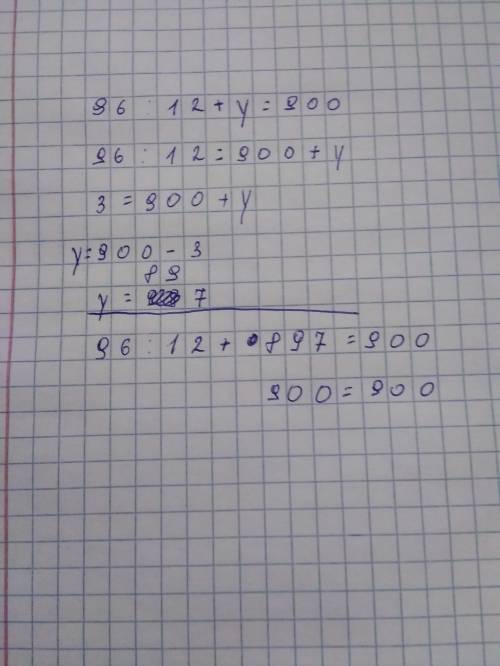 96 : 12 + y = 900
96 : 12 = 900 + y
3 = 900 + y
y = 900 - 3
y = 897
96 : 12 + 897 = 900
900 = 900